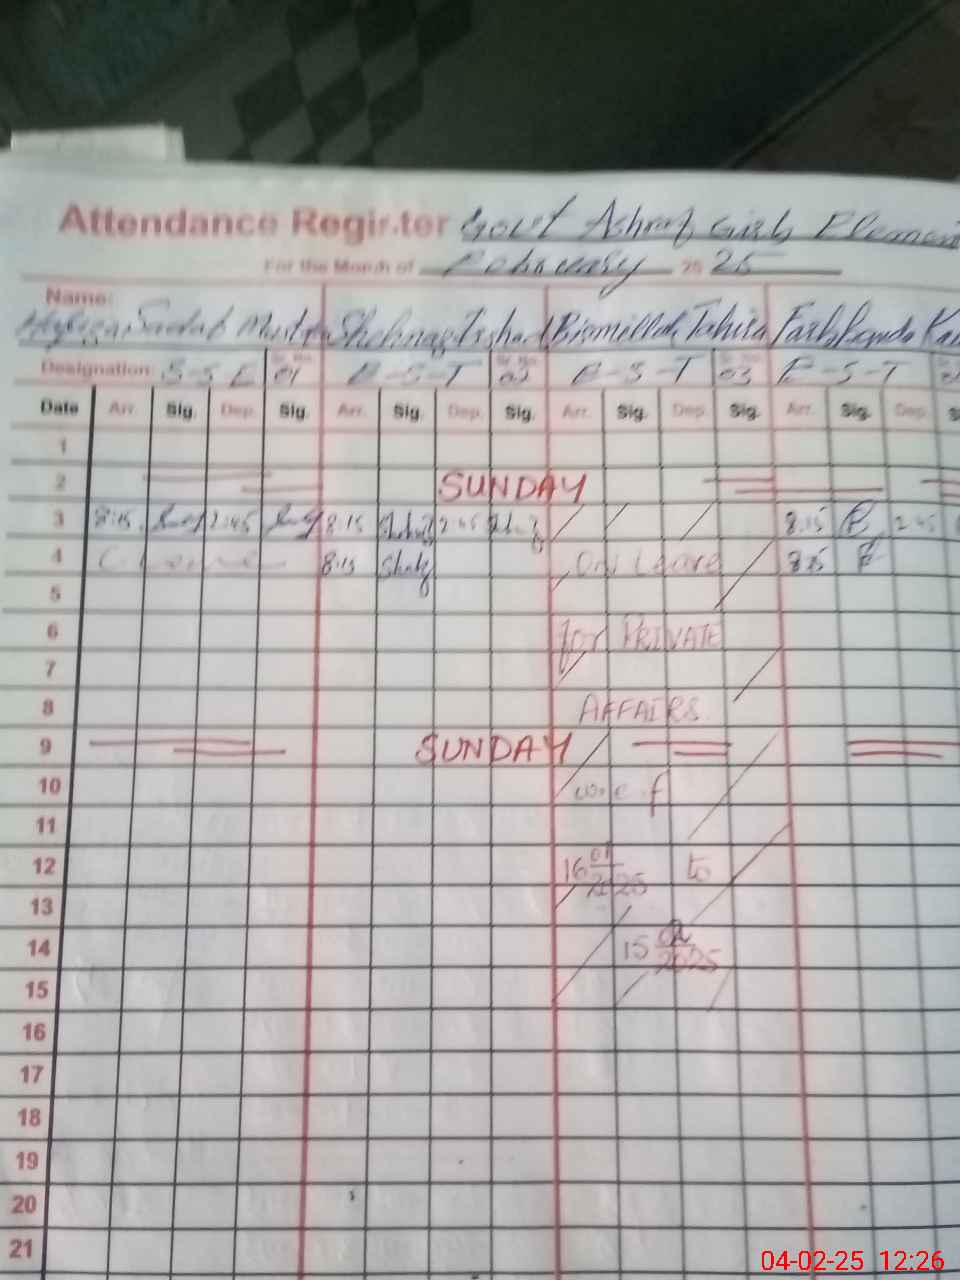 Attendance Register Govt Ashraf Girls Element
For the Month of February 20 25
Name:
Shehnaz Irshad Bismillah Tahira
Designation: S-S-E Sr. No. 01 E-S-T Sr. No. 02 E-S-T Sr. No. 03 E-S-T
Date Arr. Sig. Dep. Sig. Arr. Sig. Dep. Sig. Arr. Sig. Dep. Sig. Arr. Sig. Dep.
1
2 SUNDAY
3 8:15 2:45 8:15 2:45 8:15 2:45
4 8:15 On Leave
5
6 for PRIVATE
7
8 AFFAIRS
9 SUNDAY
10 w.e.f
11
12 16 01/2025 to
13
14 15 02/2025
15
16
17
18
19
20
21
04-02-25 12:26